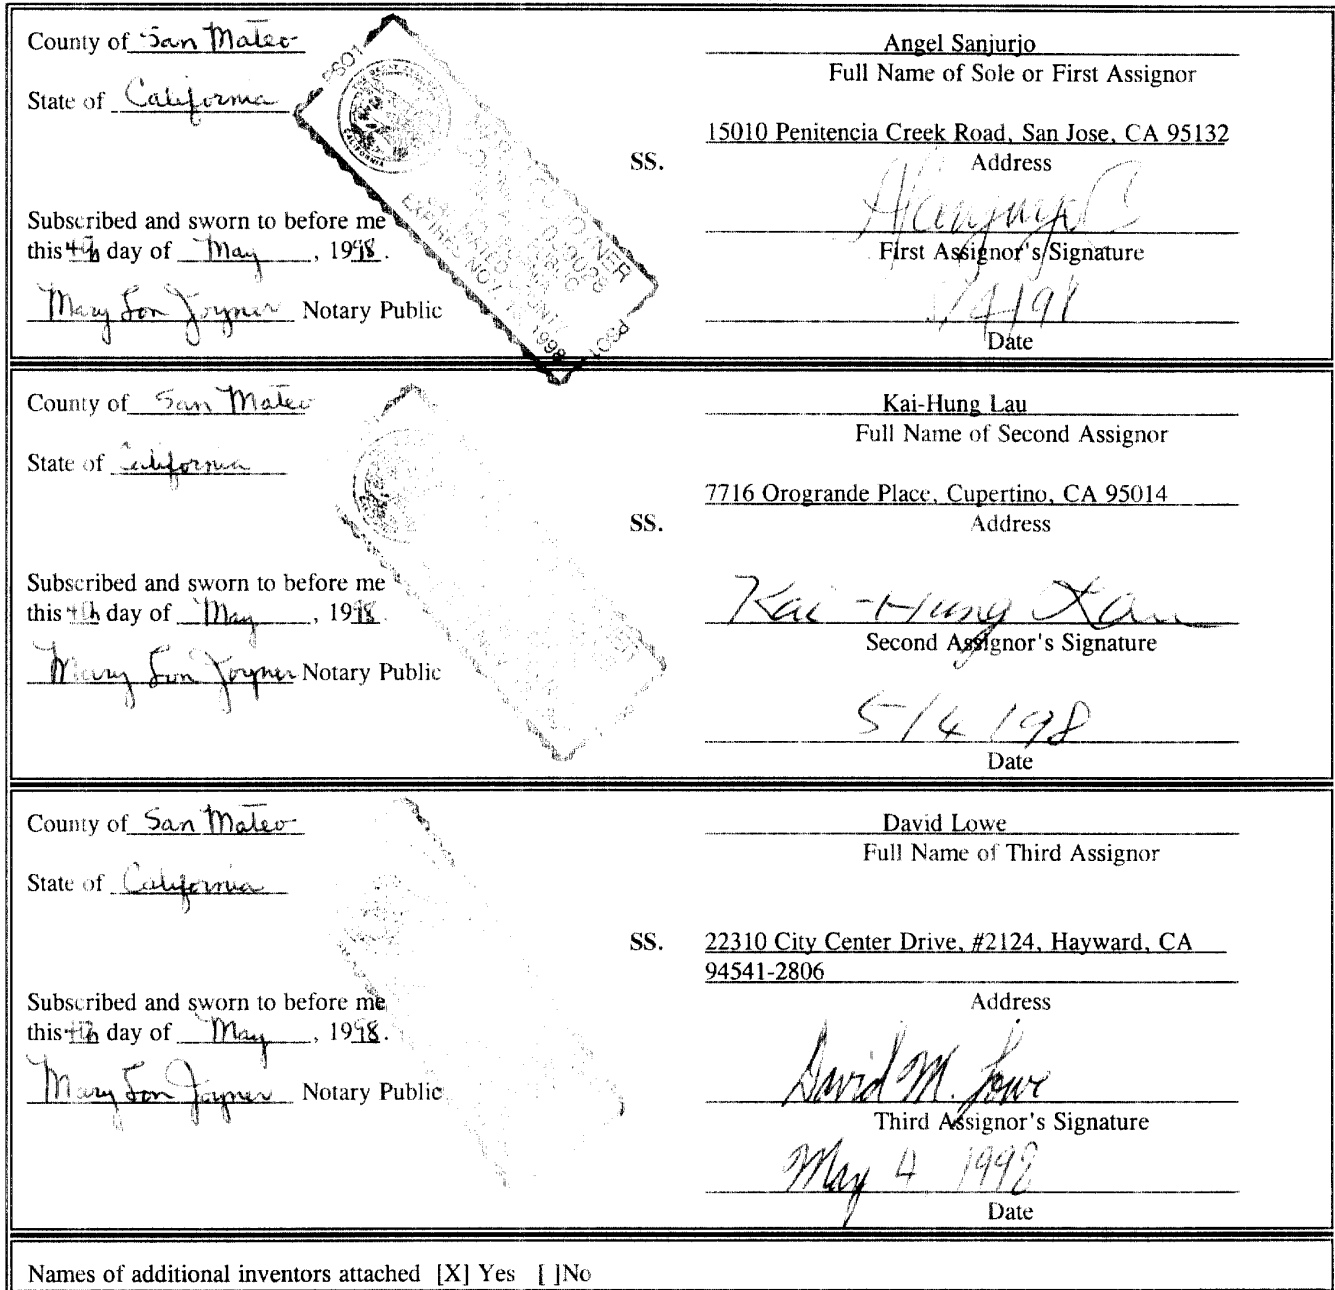 County of San Mateo
State of California
Subscribed and sworn to before me
this 4th day of May, 1998.
Mary Lou Joyner Notary Public
SS.
Angel Sanjurjo
Full Name of Sole or First Assignor
15010 Penitencia Creek Road, San Jose, CA 95132
Address
First Assignor's Signature
5/4/98
Date
PS01
CALIFORNIA
NOTARY PUBLIC
SAN MATEO COUNTY
EXPIRES NOV 1998
PS01
County of San Mateo
State of California
Subscribed and sworn to before me
this 4th day of May, 1998.
Mary Lou Joyner Notary Public
SS.
Kai-Hung Lau
Full Name of Second Assignor
7716 Orogrande Place, Cupertino, CA 95014
Address
Kai-Hung Lau
Second Assignor's Signature
5/4/98
Date
County of San Mateo
State of California
Subscribed and sworn to before me
this 4th day of May, 1998.
Mary Lou Joyner Notary Public
SS.
David Lowe
Full Name of Third Assignor
22310 City Center Drive, #2124, Hayward, CA
94541-2806
Address
David M. Lowe
Third Assignor's Signature
May 4 1998
Date
Names of additional inventors attached [X] Yes [ ]No